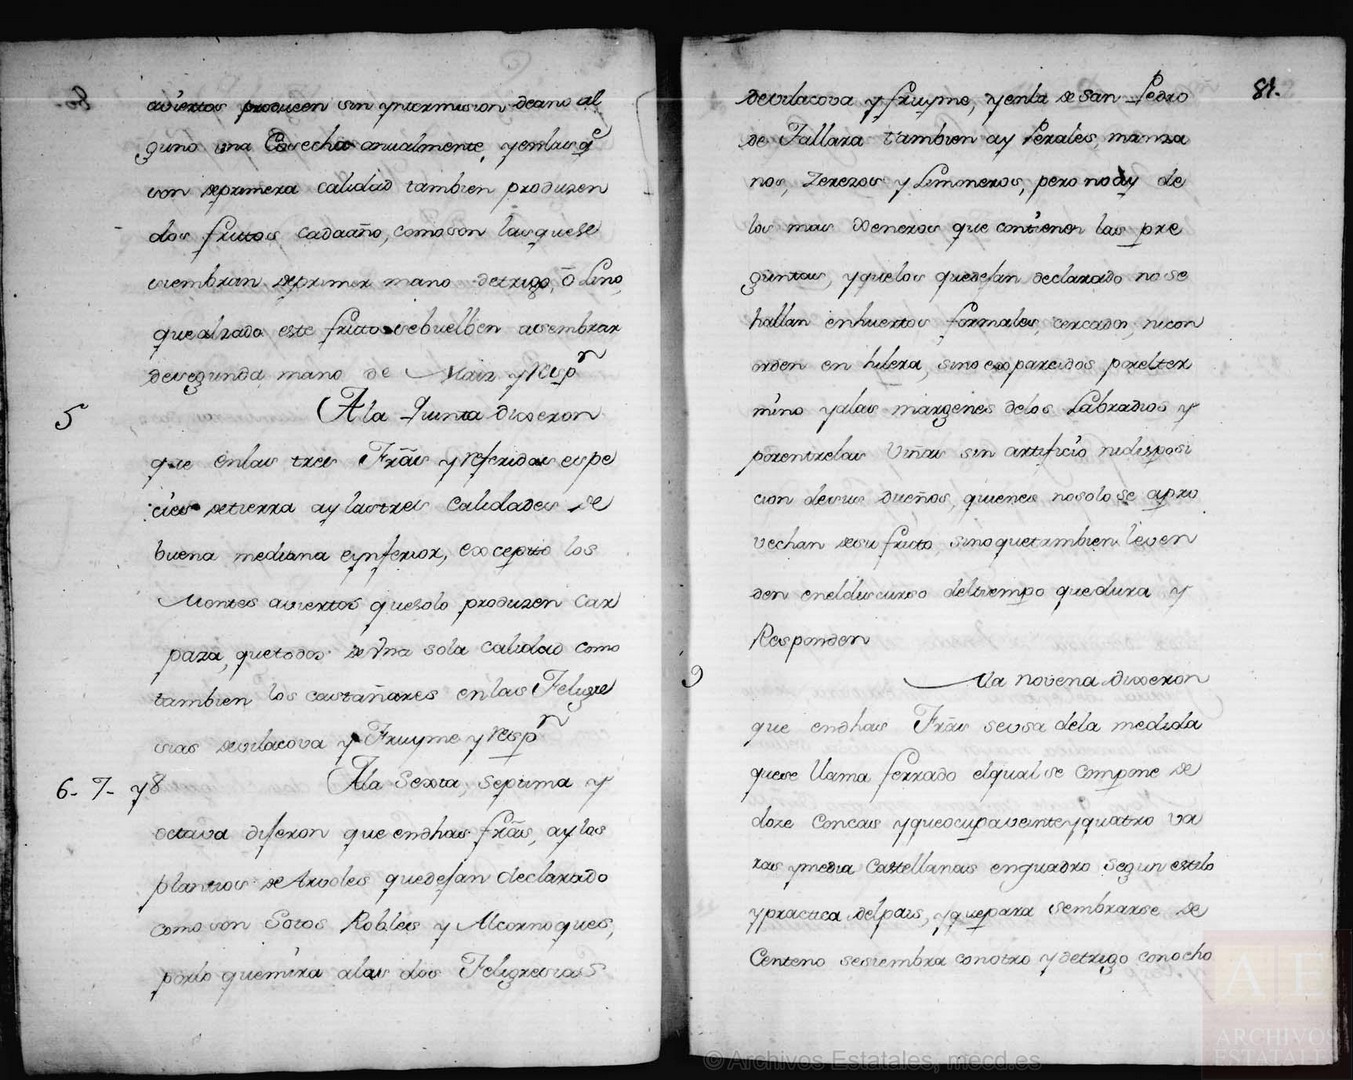 aviertos producen sin yntermision deano al
guno una Cosecha anualmente, yenlas qe
son deprimera calidad tambien produzen
dos frutos cadaaño, comoson lasquese
siembran deprimer mano detrigo, ô Lino,
quealzado este fruto sebuelben asembrar
desegunda mano de Maiz y Respn
5
A la Quinta Dixeron
que enlas tres Frãs y referidas espe
cies detierra ay lastres Calidades de
buena mediana eynferior, excepto los
Montes aviertos quesolo produzen Car
paza, quetodos de Vna sola calidad como
tambien los castañares enlas Feligre
sias devilacova y Fruyme y respn
6- 7- y8
Ala Sexta, Septima y
octava dijeron que endhas frãs, ay los
plantios de Arvoles quedejan declarado
como son Sotos Robles y Alcornoques,
porlo quemira alas dos Feligresias
81.
devilacova y fruyme, yenla de San Pedro
de Tallara tambien ay Perales, manza
nos, Zerezos y Limoneros, pero no ay de
los mas Veneros que contienen las pre
guntas, yquelos quedejan declarado no se
hallan enhuertos formales cercados, nicon
orden en hilera, sino esparcidos, porelter
mino yalas margenes delos Labradios y
porentrelas Viñas sin artificio nidisposi
cion desus dueños, quienes nosolo se apro
vechan desu fruto sinoquetambien leven
den eneldiscurso deltiempo quedura y
Responden
9
Ala novena Dixeron
que endhas Frãs seusa dela medida
quese llama ferrado elqual se Compone de
doze Concas yqueocupaveinteyquatro va
ras ymedia Castellanas enquadro Segun estilo
ypractica delpais, yquepara Sembrarse de
Centeno sesiembra conotro ydetrigo conocho
© Archivos Estatales, mecd.es
AE
ARCHIVOS
ESTATALES